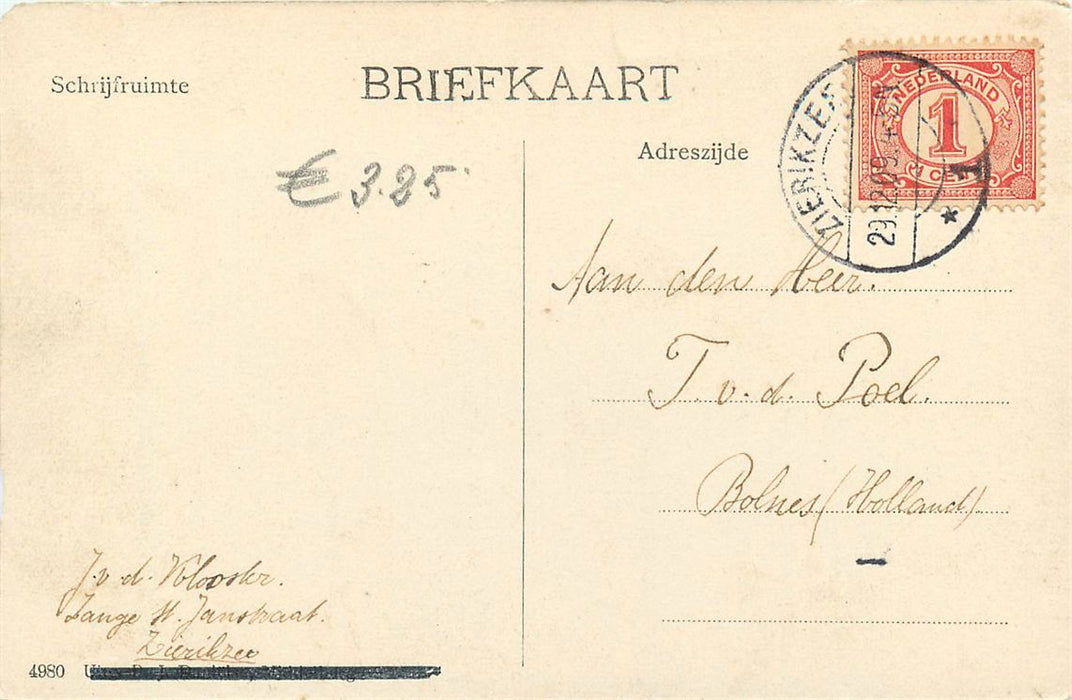 BRIEFKAART
Schrijfruimte
Adreszijde
NEDERLAND
1
1 CENT
ZIERIKZEE
29.12.09.
1
€ 3.25
Aan den Heer.
T. v. d. Poel.
Bolnes (Holland)
J. v. d. Klooster.
Lange St. Janstraat.
Zierikzee
4980